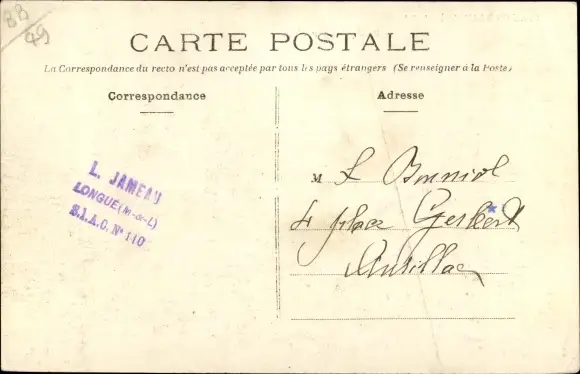 88
49
CARTE POSTALE
La Correspondance du recto n'est pas acceptée par tous les pays étrangers (Se renseigner à la Poste)
Correspondance
Adresse
L. JAMEAU
LONGUE (M-&-L)
S.I.A.C. N° 110
M L Bonniol
4 place Gerbert
Aurillac